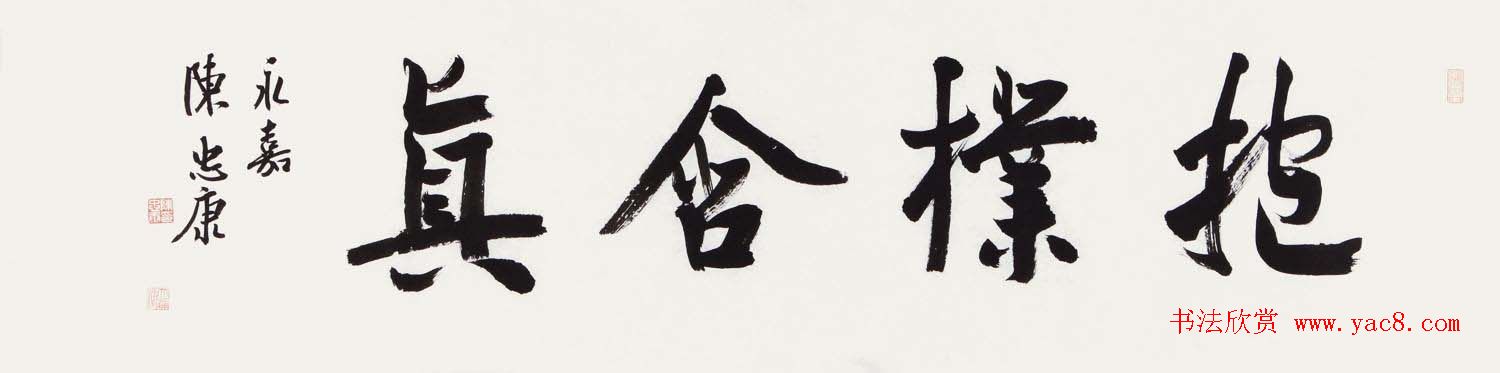 抱樸含真
永嘉
陳忠康
书法欣赏 www.yac8.com